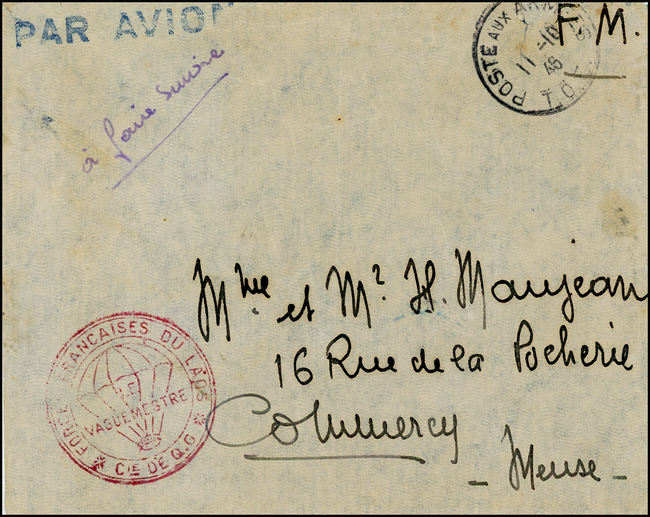 PAR AVION
POSTE AUX ARMÉES
11-10
46
T.O.
F.M.
à faire suivre
Mme et Mr H. Maujean
16 Rue de la Pocherie
Commercy
- Meuse -
FORCES FRANÇAISES DU LAOS
LE
VAGUEMESTRE
* Cie DE Q.G *